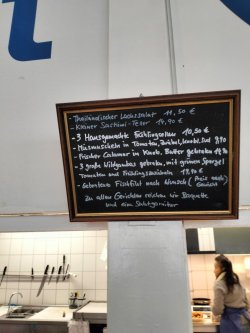 t
- Thailändischer Lachssalat 11,50 €
- Kleiner Sashimi-Teller 14,90 €
- 3 Hausgemachte Frühlingsrollen 10,50 €
- Miesmuscheln in Tomaten, Zwiebel,
- Frischer Calamar in Knob. Butter gebraten
- 3 große Wildgambas gebraten, mit grünem Spargel
Tomaten und Frühlingszwiebeln
- Gebratenes Fischfilet nach Wunsch (Preis nach
Zu allen Gerichten reichen wir Baguette
und eine Salatgarnitur